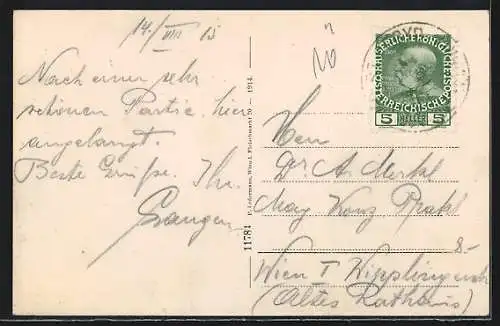 14./VIII 15
Nach einer sehr
schönen Partie hier
angelangt.
Beste Grüße. Ihr
KAISERLICHE KÖNIGLICHE
ÖSTERREICHISCHE POST
5 HELLER 5
11781 P. Ledermann, Wien I. Fleischmarkt 20 — 1914.
Herrn
Dr A. Merkl
Mag Konz Prakt
8-
Wien I Wipplingerstr
(Altes Rathaus)